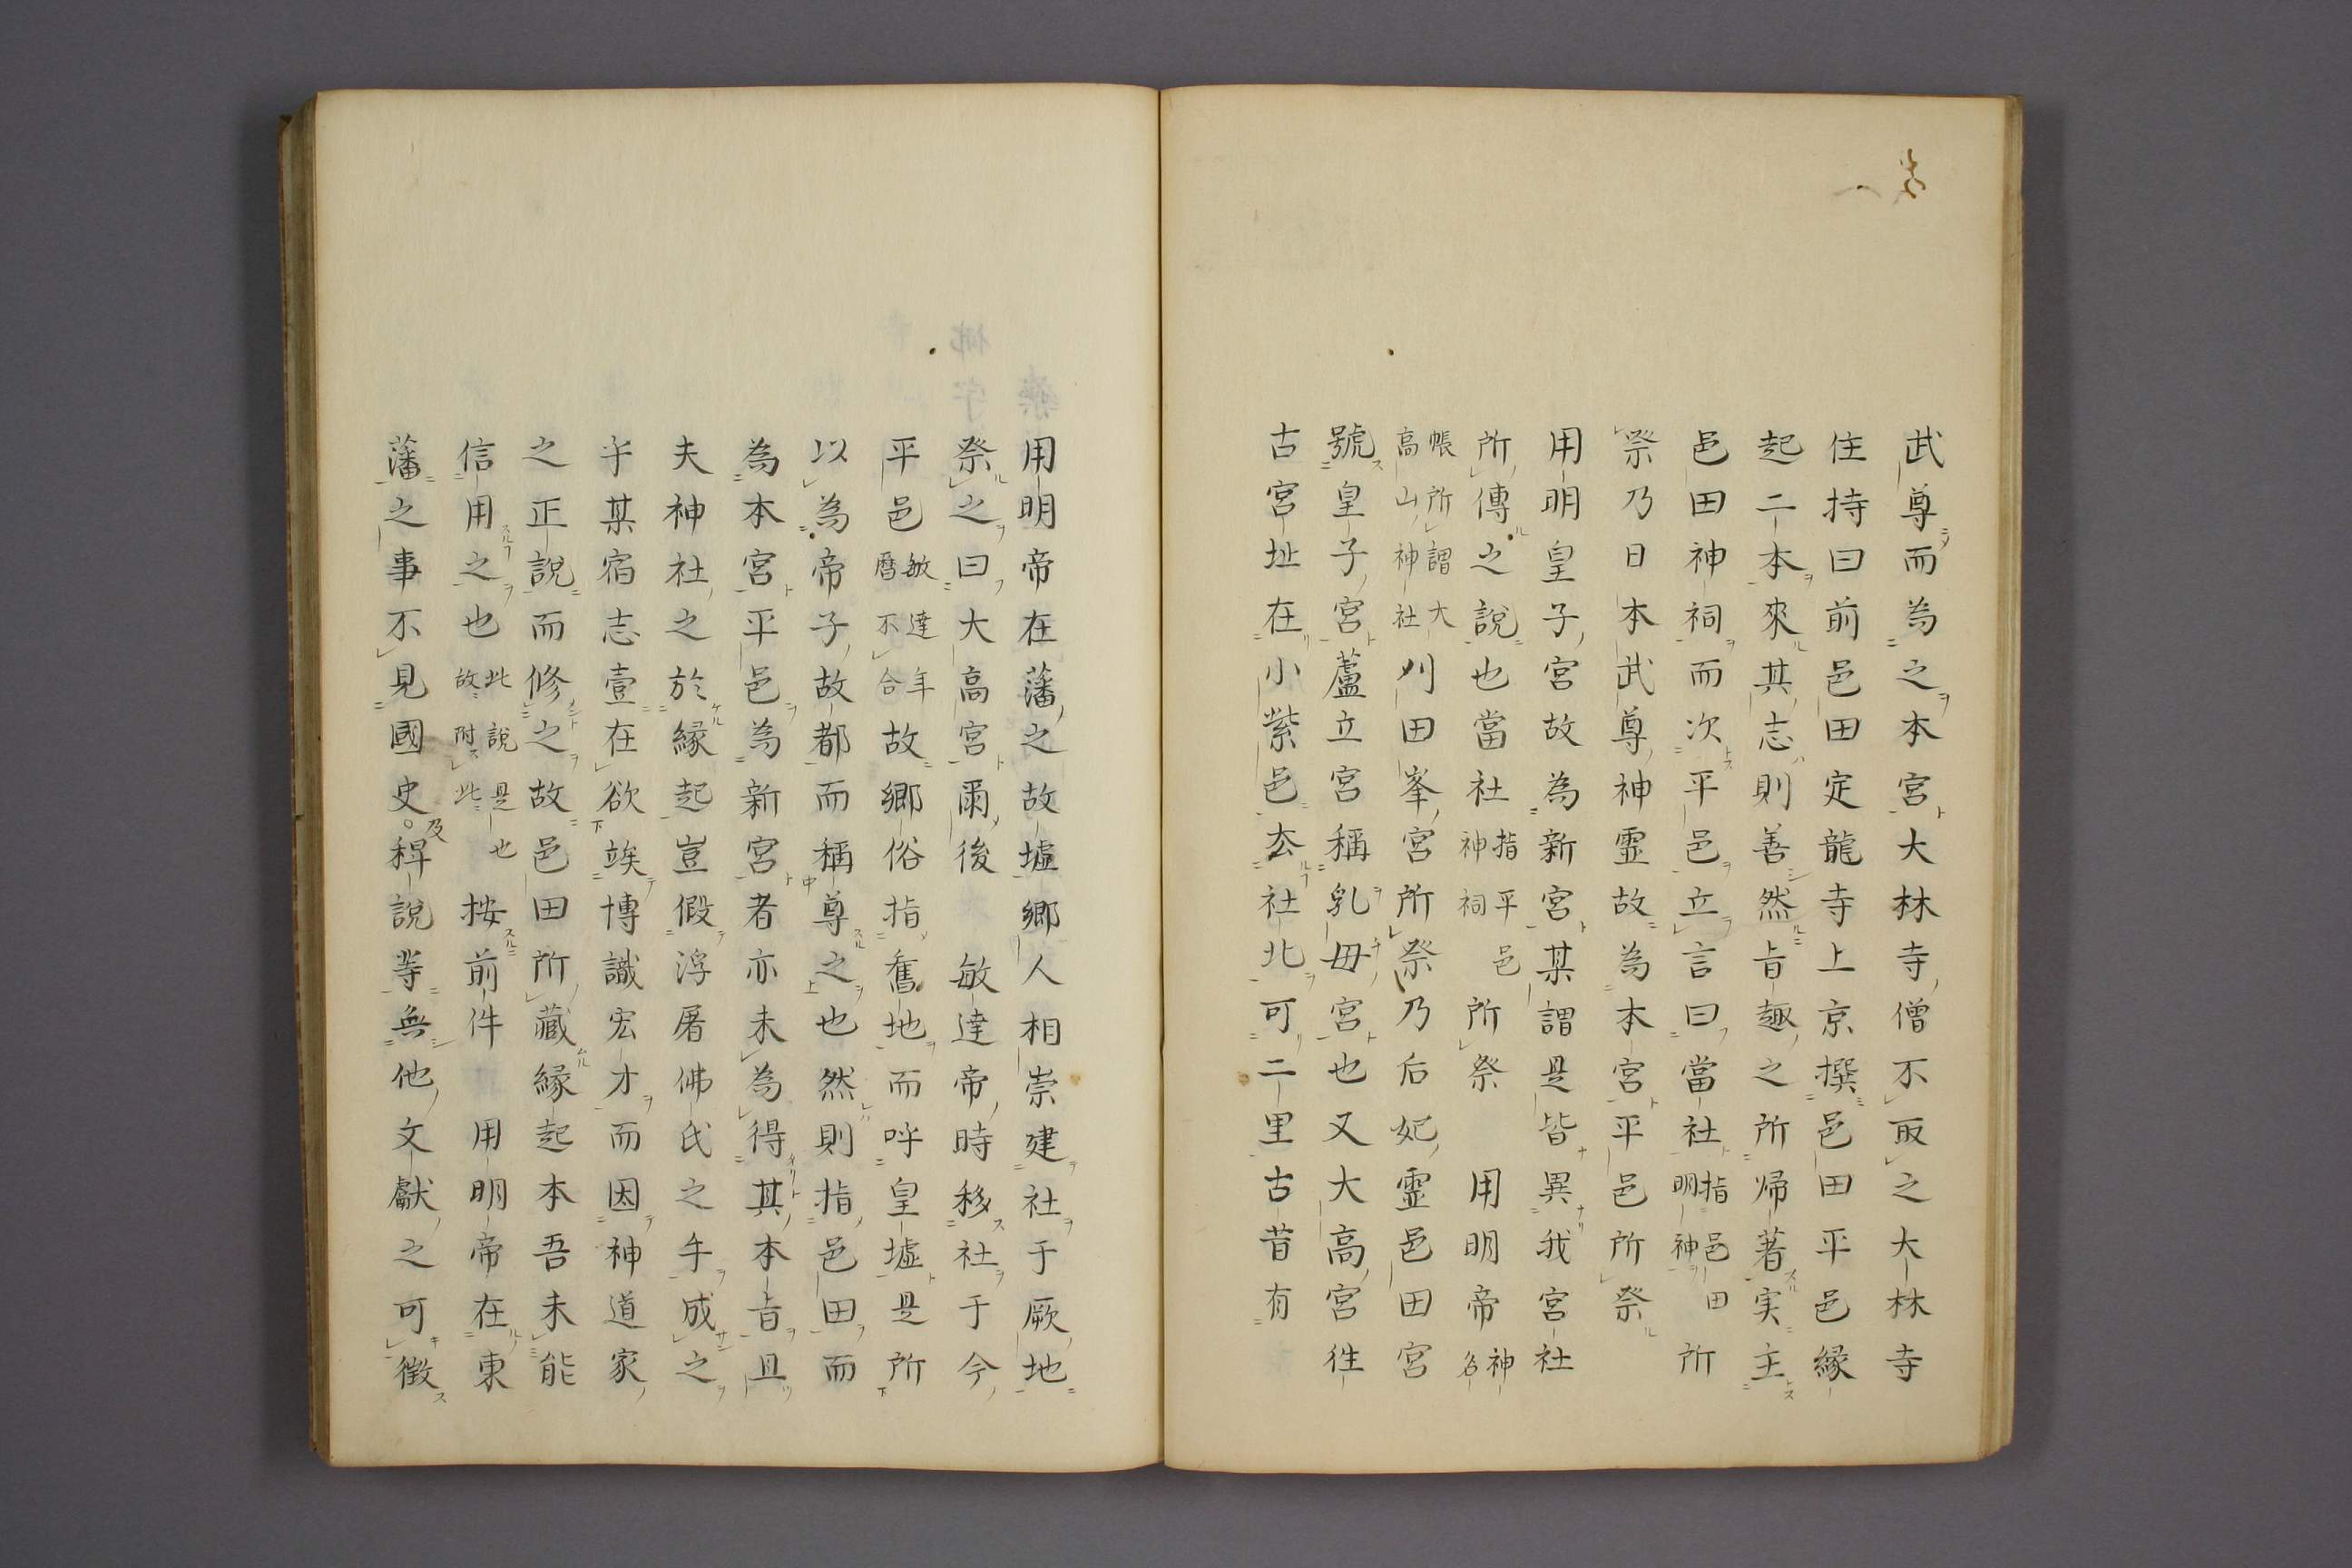 武尊而為之本宮大林寺僧不取之大林寺
住持曰前邑田定龍寺上京撰邑田平邑縁
起二本來其志則善然旨趣之所帰著実主
邑田神祠而次平邑立言曰當社指邑田明神所
祭乃日本武尊神霊故為本宮平邑所祭
用明皇子宮故為新宮某謂是皆異我宮社
所傳之說也當社指平邑神祠所祭 用明帝神名
帳所謂大高山神社刈田峯宮所祭乃后妃霊邑田宮
號皇子宮蘆立宮稱乳母宮也又大高宮徃
古宮址在小紫邑厺社北可二里古昔有
用明帝在藩之故墟郷人相崇建社于厥地
祭之曰大高宮爾後 敏達帝時移社于今
平邑敏達年暦不合故郷俗指舊地而呼皇墟是所
以為帝子故都而稱尊之也然則指邑田而
為本宮平邑為新宮者亦未為得其本旨且
夫神社之於縁起豈假浮屠佛氏之手成之
乎某宿志壹在欲竢博識宏才而因神道家
之正說而修之故邑田所藏縁起本吾未能
信用之也此說是也故附此 按前件 用明帝在東
藩之事不見國史及稗說等無他文獻之可徴